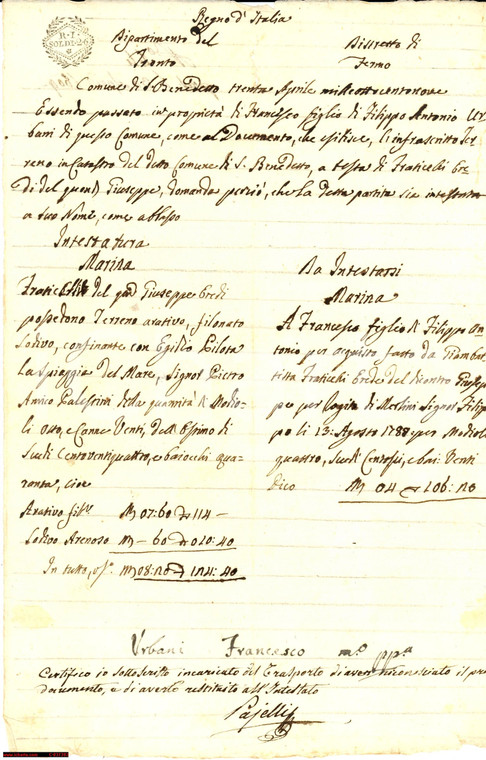 Regno d'Italia
R · I
SOLDI · 26
Dipartimento del
Distretto di
Tronto
Fermo
Comune di S. Benedetto trenta Aprile milleottocentonove
Essendo passato in proprietà di Francesco figlio di Filippo Antonio Ur=
bani di questo Comune, come al Documento, che esibisce, l'infrascritto Ter=
reno in Catastro del detto Comune di S. Benedetto, a testa di Fraticelli Ere=
di del quond Giuseppe, domanda perciò, che la detta partita sia intestata
a suo Nome, come abbasso
Intestatura
Marina
Fraticelli del qud Giuseppe Eredi
possedono Terreno arativo, filonato
Sodivo, confinante con Egidio Pilota
la Spiaggia del Mare, Signor Pietro
Amico Palestini della quantità di Modio=
li otto, e Canne Venti, dell Estimo di
Scudi Centoventiquattro, e baiocchi qua=
ranta, cioè
Arativo fil.to M 07:60 114 -
Sodivo Arenoso M - 60 010:40
In tutto M 08:20 124:40
Da Intestarsi
Marina
A Francesco figlio di Filippo An
tonio per acquisto fatto da Giambat
tista Fraticelli Erede del dicontro Giusep
pe per Rogito di Merlini Signor Filip
po li 13: Agosto 1788: per Modioli
quattro, Scudi Centosei, e bai: Venti
Dico M 04 106:20
Urbani Francesco m.o pp.a
Certifico io sottoscritto incaricato del Trasporto di aver riconosciuto il pre
documento, e di averlo restituito all'Intestato